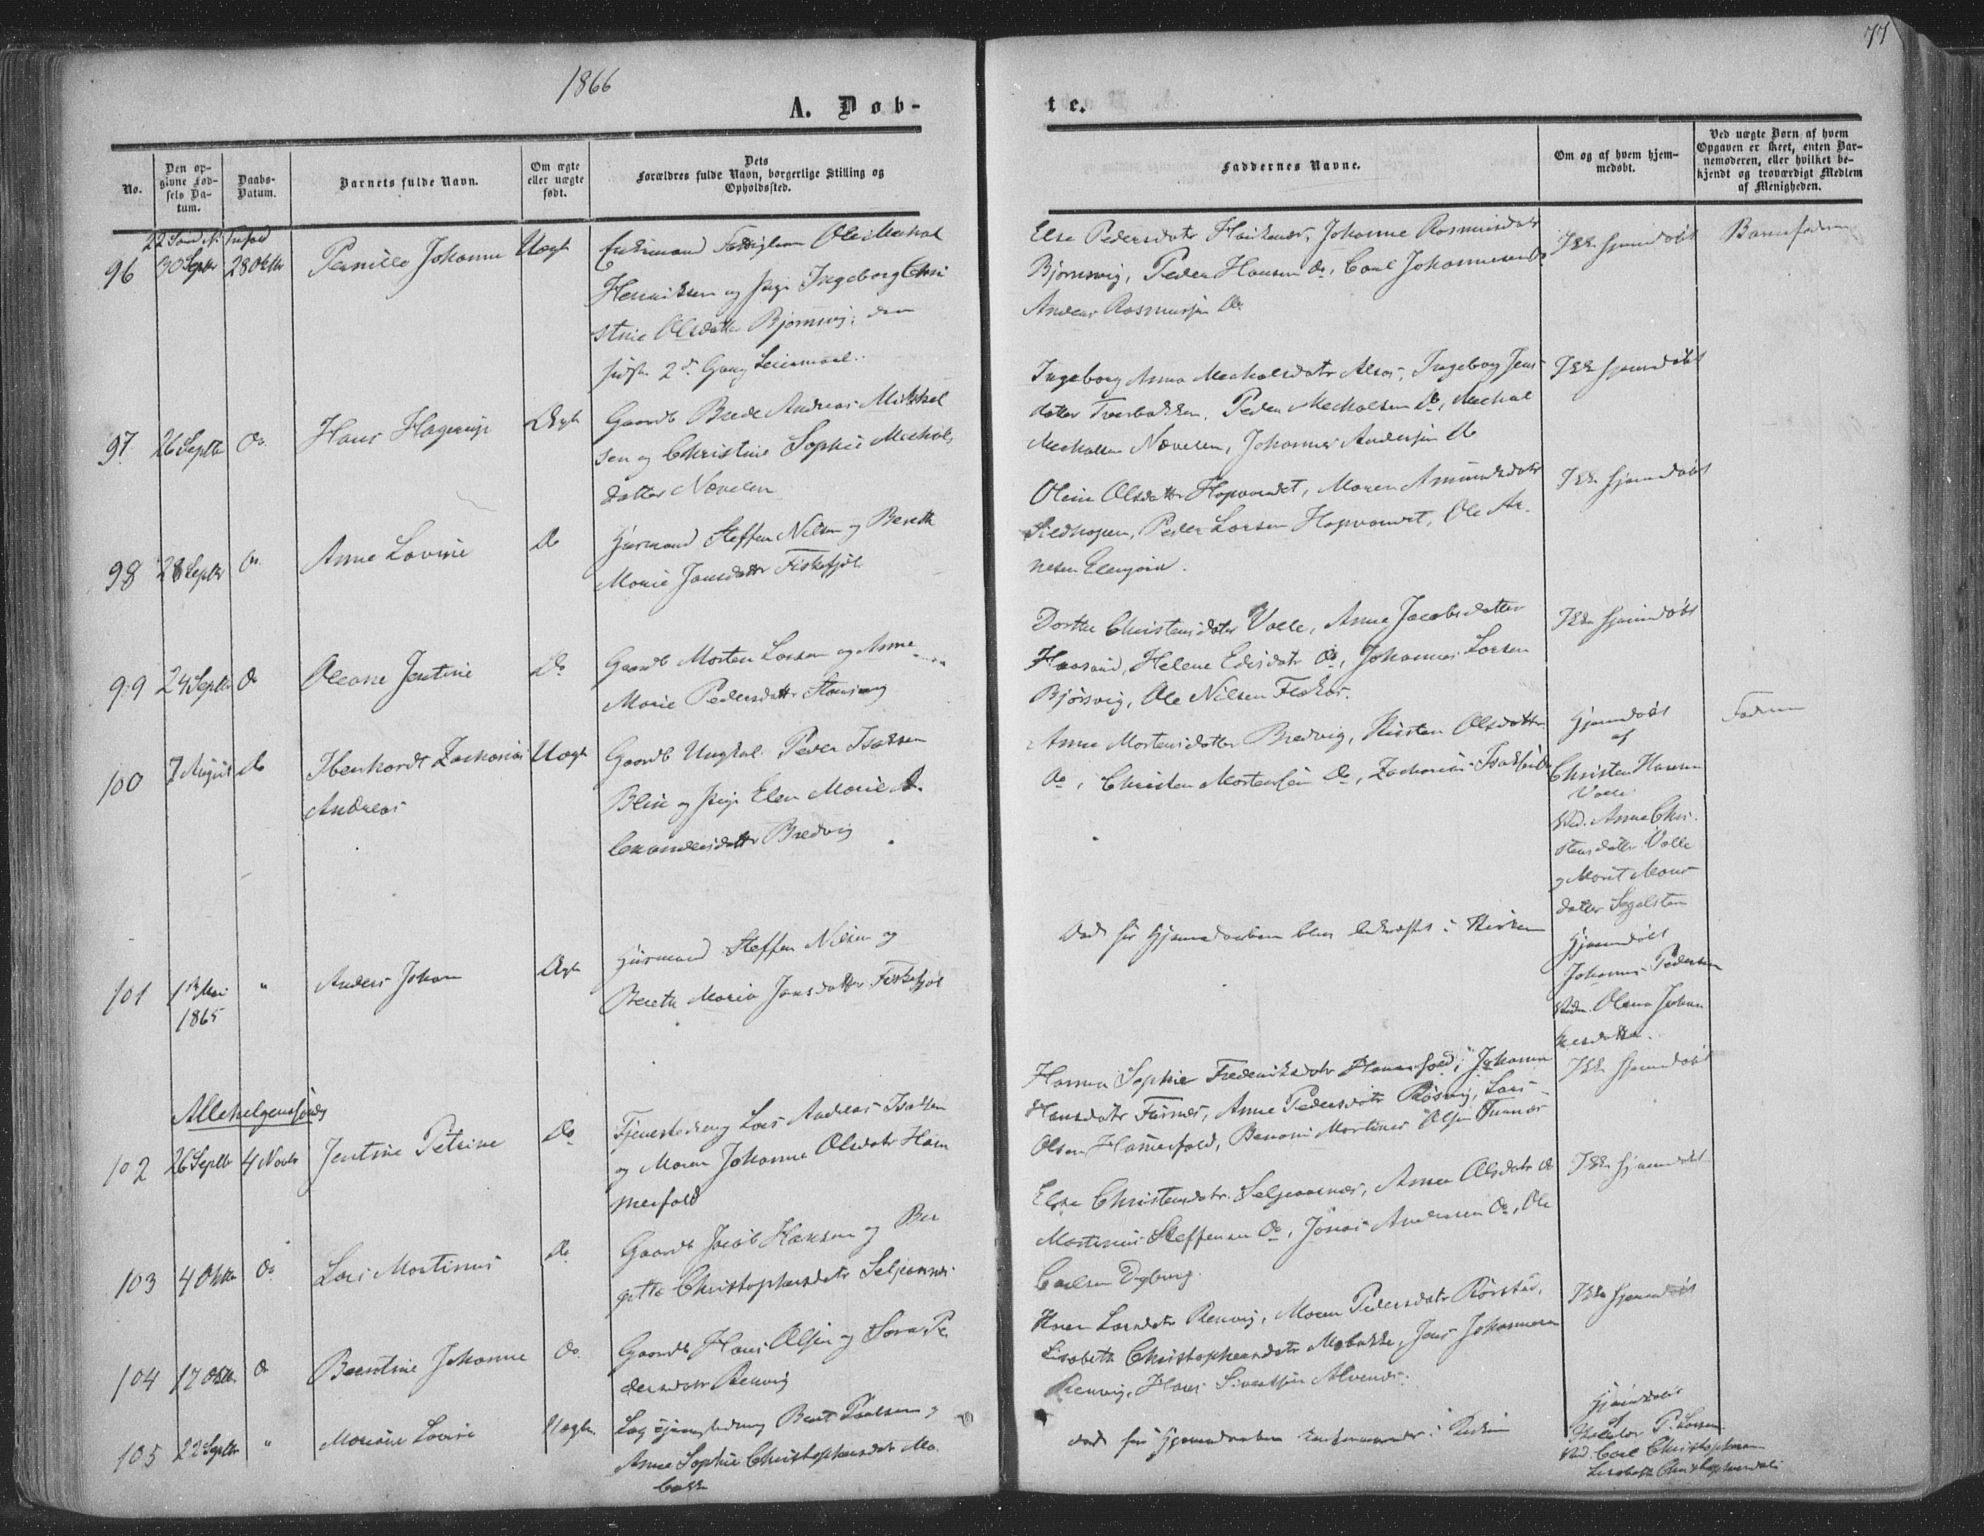 1866
77
A. Døb-
te.
No.
Den op-
givne Fød-
sels Da-
tum.
Daabs-
Datum.
Barnets fulde Navn.
Om ægte
eller uægte
født.
Dets
Forældres fulde Navn, borgerlige Stilling og
Opholdssted.
Faddernes Navne.
Om og af hvem hjem-
medøbt.
Ved uægte Børn af hvem
Opgaven er skeet, enten Bar-
nemoderen, eller hvilket be-
kjendt og troværdigt Medlem
af Menigheden.
96
30 Septbr 28 Oktbr
Pernille Johanne
Uægte
Enkemand Ole Mechal
Henriksen og Pige Ingeborg Chri
stine Olsdatter Bjørnsvig; den
sidste 2den Gang Leiermaal.
Else Pedersdatr Johanne Rasmusdatr
Bjørnsvig, Peder Hansen Do, Carl Johannesen Do
Andeas Rasmussen Do
Ikke hjemdøbt
Barnefaderen
97
26 Septbr
Do
Hans Hagerup
Ægte
Gaardb Berde Andreas Mikkel
sen og Christine Sophie Mechals
datter Nævelen
Ingeborg Anna Mechalsdatr Alsos, Ingeborg Jens
datter Tverbakken, Peder Mechalsen Do, Mechal
Mechalsen Nævelen, Johannes Andersen Do
Ikke hjemdøbt
98
28 Septbr
Do
Anne Lovise
Do
Huusmand Steffen Nilsen og Bereth
Marie Jansdatter Fiskefjøl
Oline Olsdatter Hopvandet, Maren Amundsdatr
Sildhopen, Peder Larsen Hopvandet, Ole Ar-
nesen Elvegaard.
Ikke hjemdøbt
99
24 Septbr
Do
Oleane Jentine
Do
Gaardb Morten Larsen og Anne
Marie Pedersdatter
Dorthe Christensdater Valle, Anna Jacobsdatter
Haasand, Helene Do, Johannes Larsen
Bjørsvig, Ole Nilsen
Ikke hjemdøbt
100
7 August
Do
Ibenhardt Zacharias
Andreas
Uægte
Gaardb Ungkal. Peder Isaksen
og Pige Elen Marie A
lexandersdatter Bredvig
Anne Mortensdatter Bredvig, Kirsten Olsdatter
Do, Christen Mortensen Do, Zacharias Isaksen
Hjemdøbt
af
Christen Hansen
Valle
Vid. Anna Chri-
stensdatter Valle
og Marit Mons
datter Segelsten
Faderen
101
1ste Mai
1865
"
Anders Johan
Ægte
Huusmand Steffen Nilsen og
Bereth Maria Jansdatter Fiskefjøl
Død før Hjemdaaben blev bekræftet i Kirken
Hjemdøbt
Johannes Pedersen
Vidn. Olena Johan
nesdatter
Allehelgensdag
102
26 Septbr 4 Novbr
Jentine Petrine
Do
Tjenestedreng Lars Andreas Isaksen
og Maren Johanne Olsdatr Ham
merfald
Hanna Sophie Frederiksdatr Johanna
Hansdatr Furnes, Anne Pedersdatr Røsvig, Lars
Olsen Hammerfald, Benoni Martines Olsen
Ikke hjemdøbt
103
4 Oktbr
Do
Lars Martinus
Do
Gaardb Jacob Hansen og Ber
gitte Christophersdatr Seljeannes
Else Christensdatr Seljeannes, Anna Olsdatr Do
Martinus Steffensen Do, Jonas Andersen Do, Ole
Carlsen
Ikke hjemdøbt
104
17 Oktbr
Do
Berntine Johanne
Do
Gaardb Hans Olsen og Sara Pe
dersdatr Renvig
Karen Larsdatr Renvig, Maren Pedersdatr Rørstad,
Lisabeth Christophersdatr Mobakke, Jens Johannesen
Renvig, Hans Sivertsen
Ikke hjemdøbt
105
22 Septbr
"
Mariane Lovise
Uægte
Bent Paulsen og
Anne Sophie Christophersdatr Mo
bakke
Død før Hjemdaaben i Kirken
Hjemdøbt
af
P. Larsen
Vid. Carl Christophersen
Lisabeth Christophersdatr